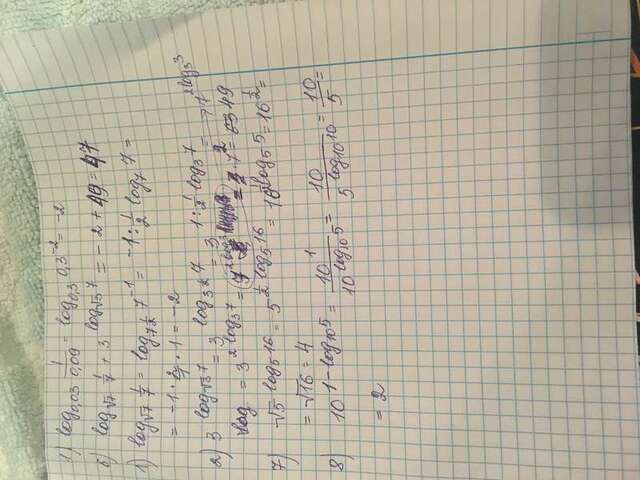 1) log₀,₀₃ 1/0,09 = log₀,₃ 0,3⁻² = -2
6) log_√7 1/7 + 3^(log_√3 7) = -2 + 49 = 47
1) log_√7 1/7 = log_(7^(1/2)) 7⁻¹ = -1 : 1/2 log₇ 7 =
= -1 · 2/1 · 1 = -2
2) 3^(log_√3 7) = 3^(log_(3^(1/2)) 7) = 3^(1 : 1/2 log₃ 7) = → 7^(2log₃ 3)
= 3^(2 log₃ 7) = 7² = 49
7) √5^(log₅ 16) = 5^(1/2 log₅ 16) = 16^(1/2 log₅ 5) = 16^(1/2) =
= √16 = 4
8) 10^(1 - log₁₀ 5) = 10¹/10^(log₁₀ 5) = 10/5^(log₁₀ 10) = 10/5 =
= 2